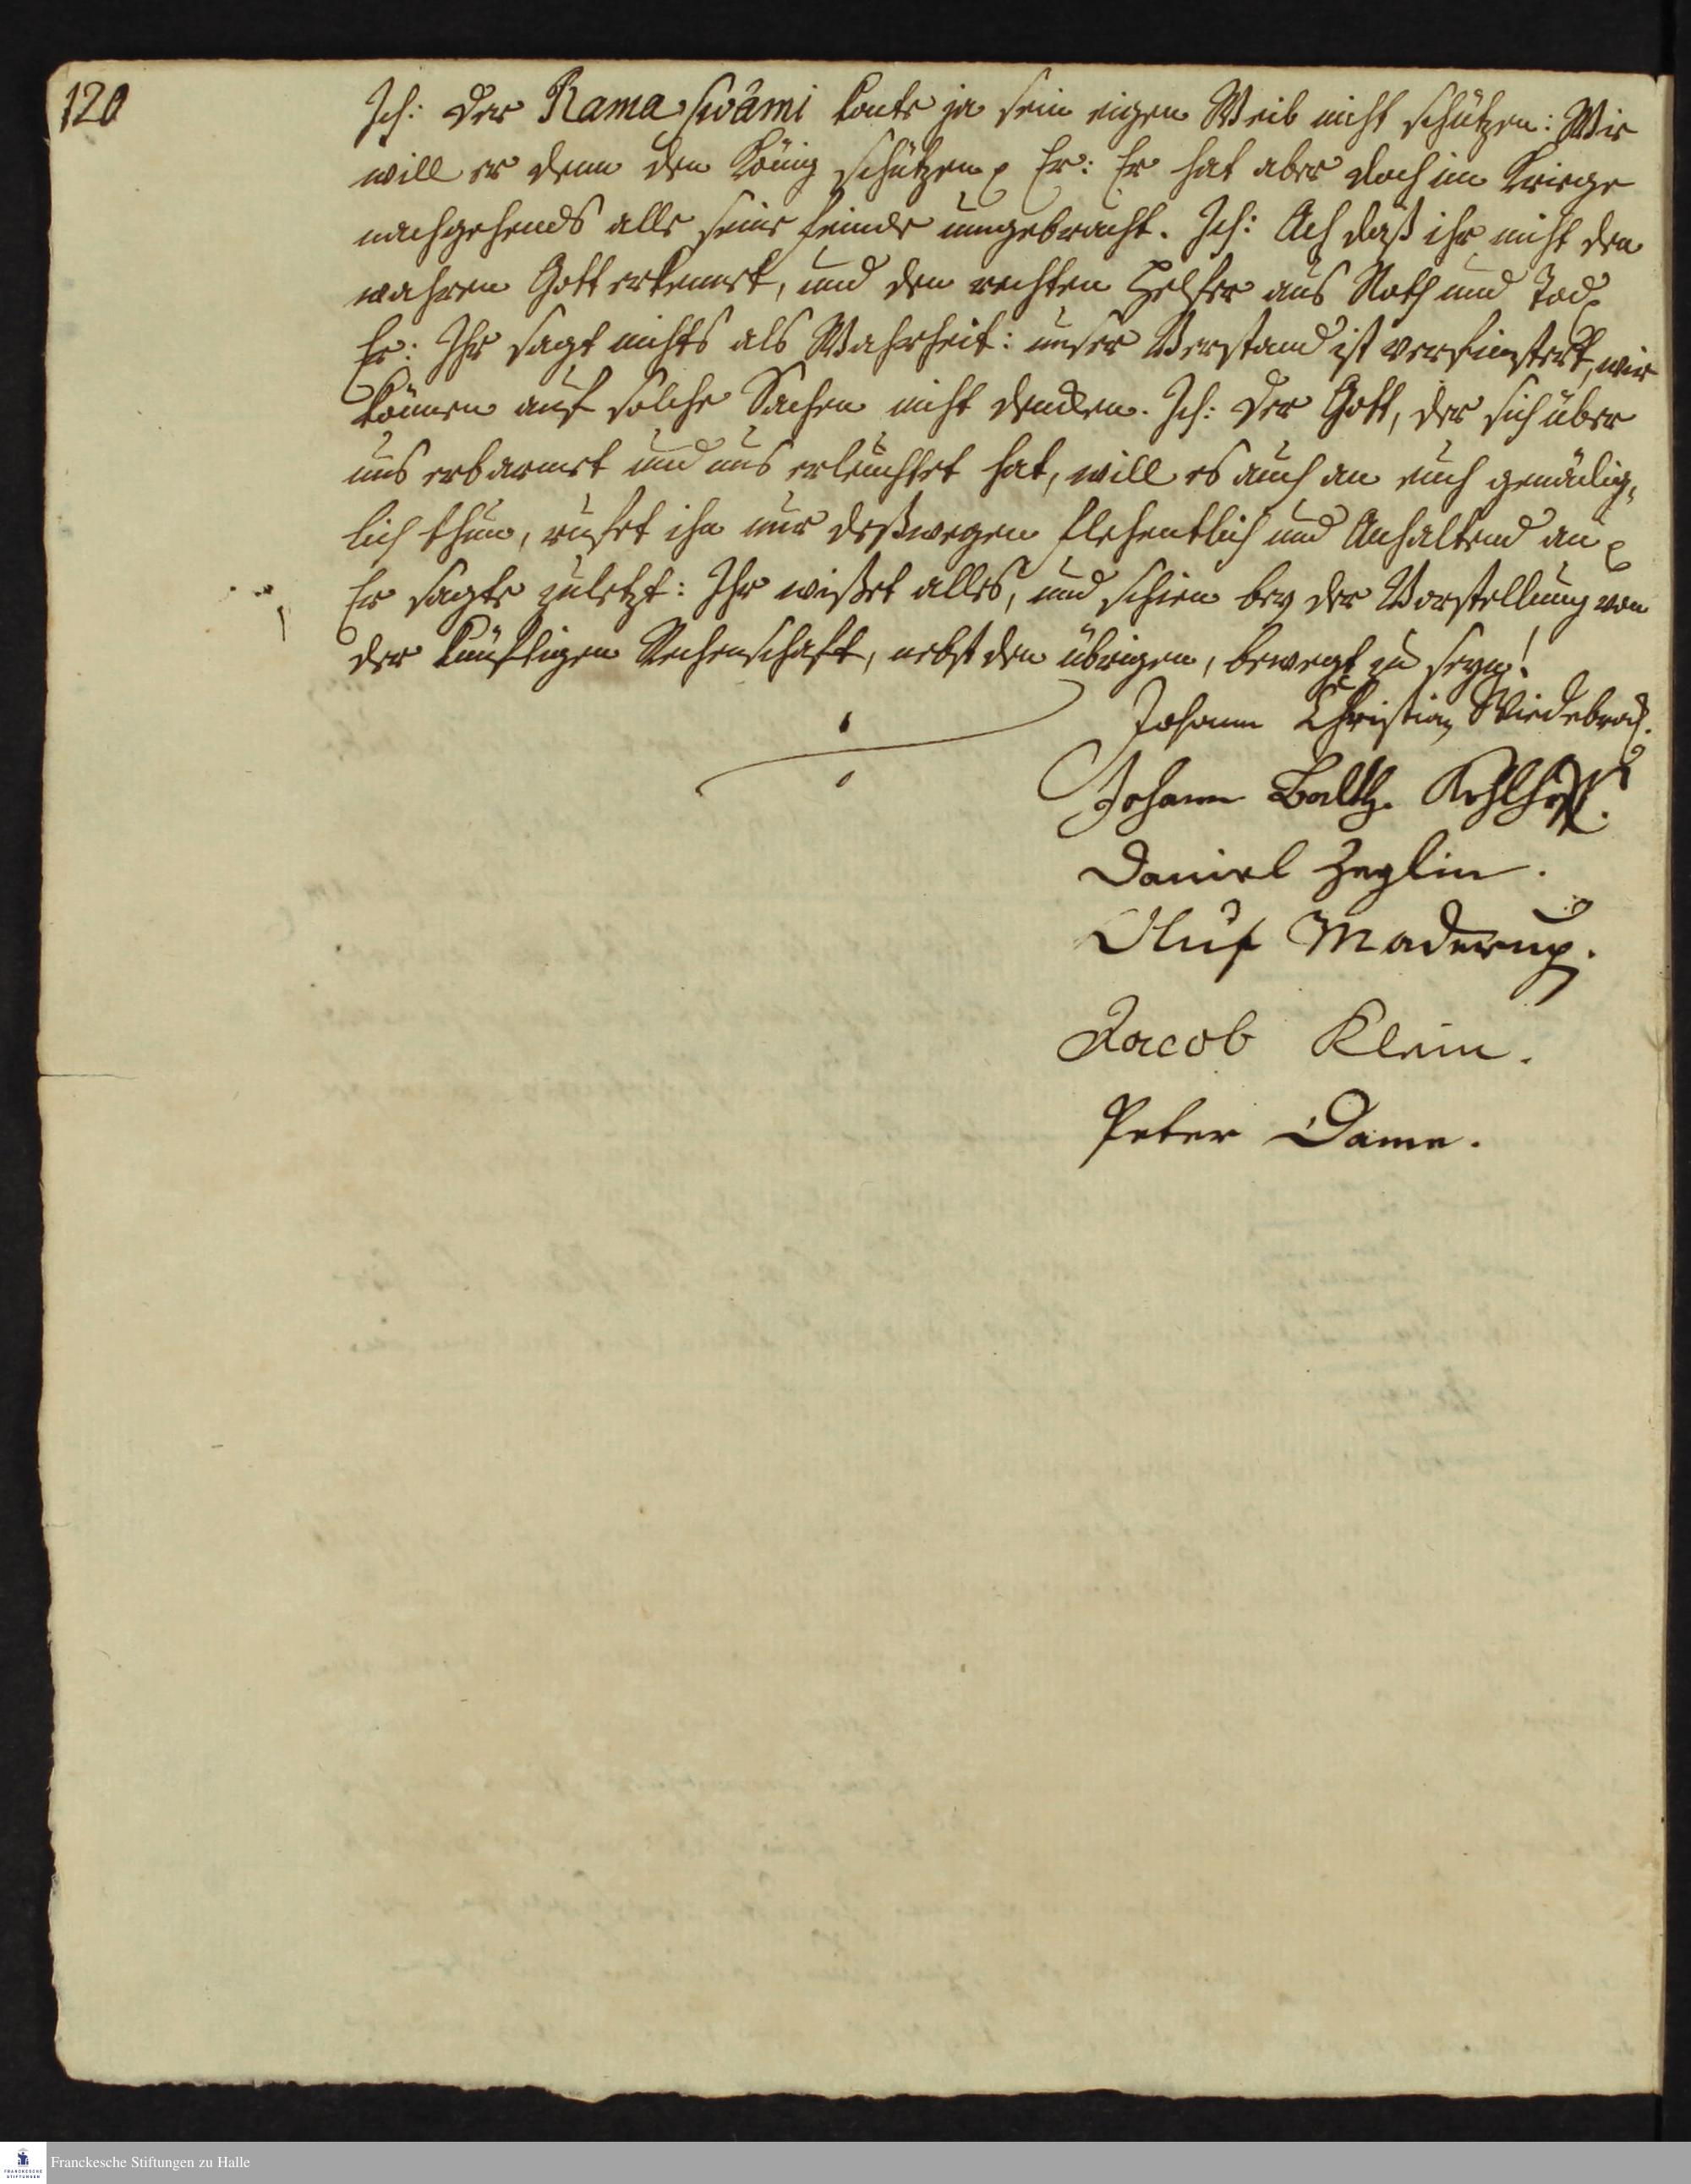 120
Ich: Der Rama swâmi konte ja sein eigen Weib nicht schützen: Wie
will er denn den König schützen? Er: Er hat aber doch im Kriege
nachgehends alle seine Feinde umgebracht. Ich: Ach daß ihr nicht den
wahren Gott erkennet, und den rechten Helfer aus Noth und Tod
Er: Ihr sagt nichts als Wahrheit: unser Verstand ist verfinstert, wir
können auf solche Sachen nicht dencken. Ich: Der Gott, der sich über
uns erbarmet und uns erleuchtet hat, will es auch an euch gnädig,
lich thun, rufet ihn nur deßwegen flehentlich und Anhaltend an
Er sagte zuletzt: Ihr wißet alles, und schien bey der Vorstellung von
der künftigen Rechenschaft, nebst den übrigen, bewegt zu seyn!
Johann Christian Wiedebrock.
Johann Balth. Kohlhoff.
Daniel Zeglin.
Oluf Maderup.
Jacob Klein.
Peter Dame.
FRANCKESCHE
STIFTUNGEN
Franckesche Stiftungen zu Halle